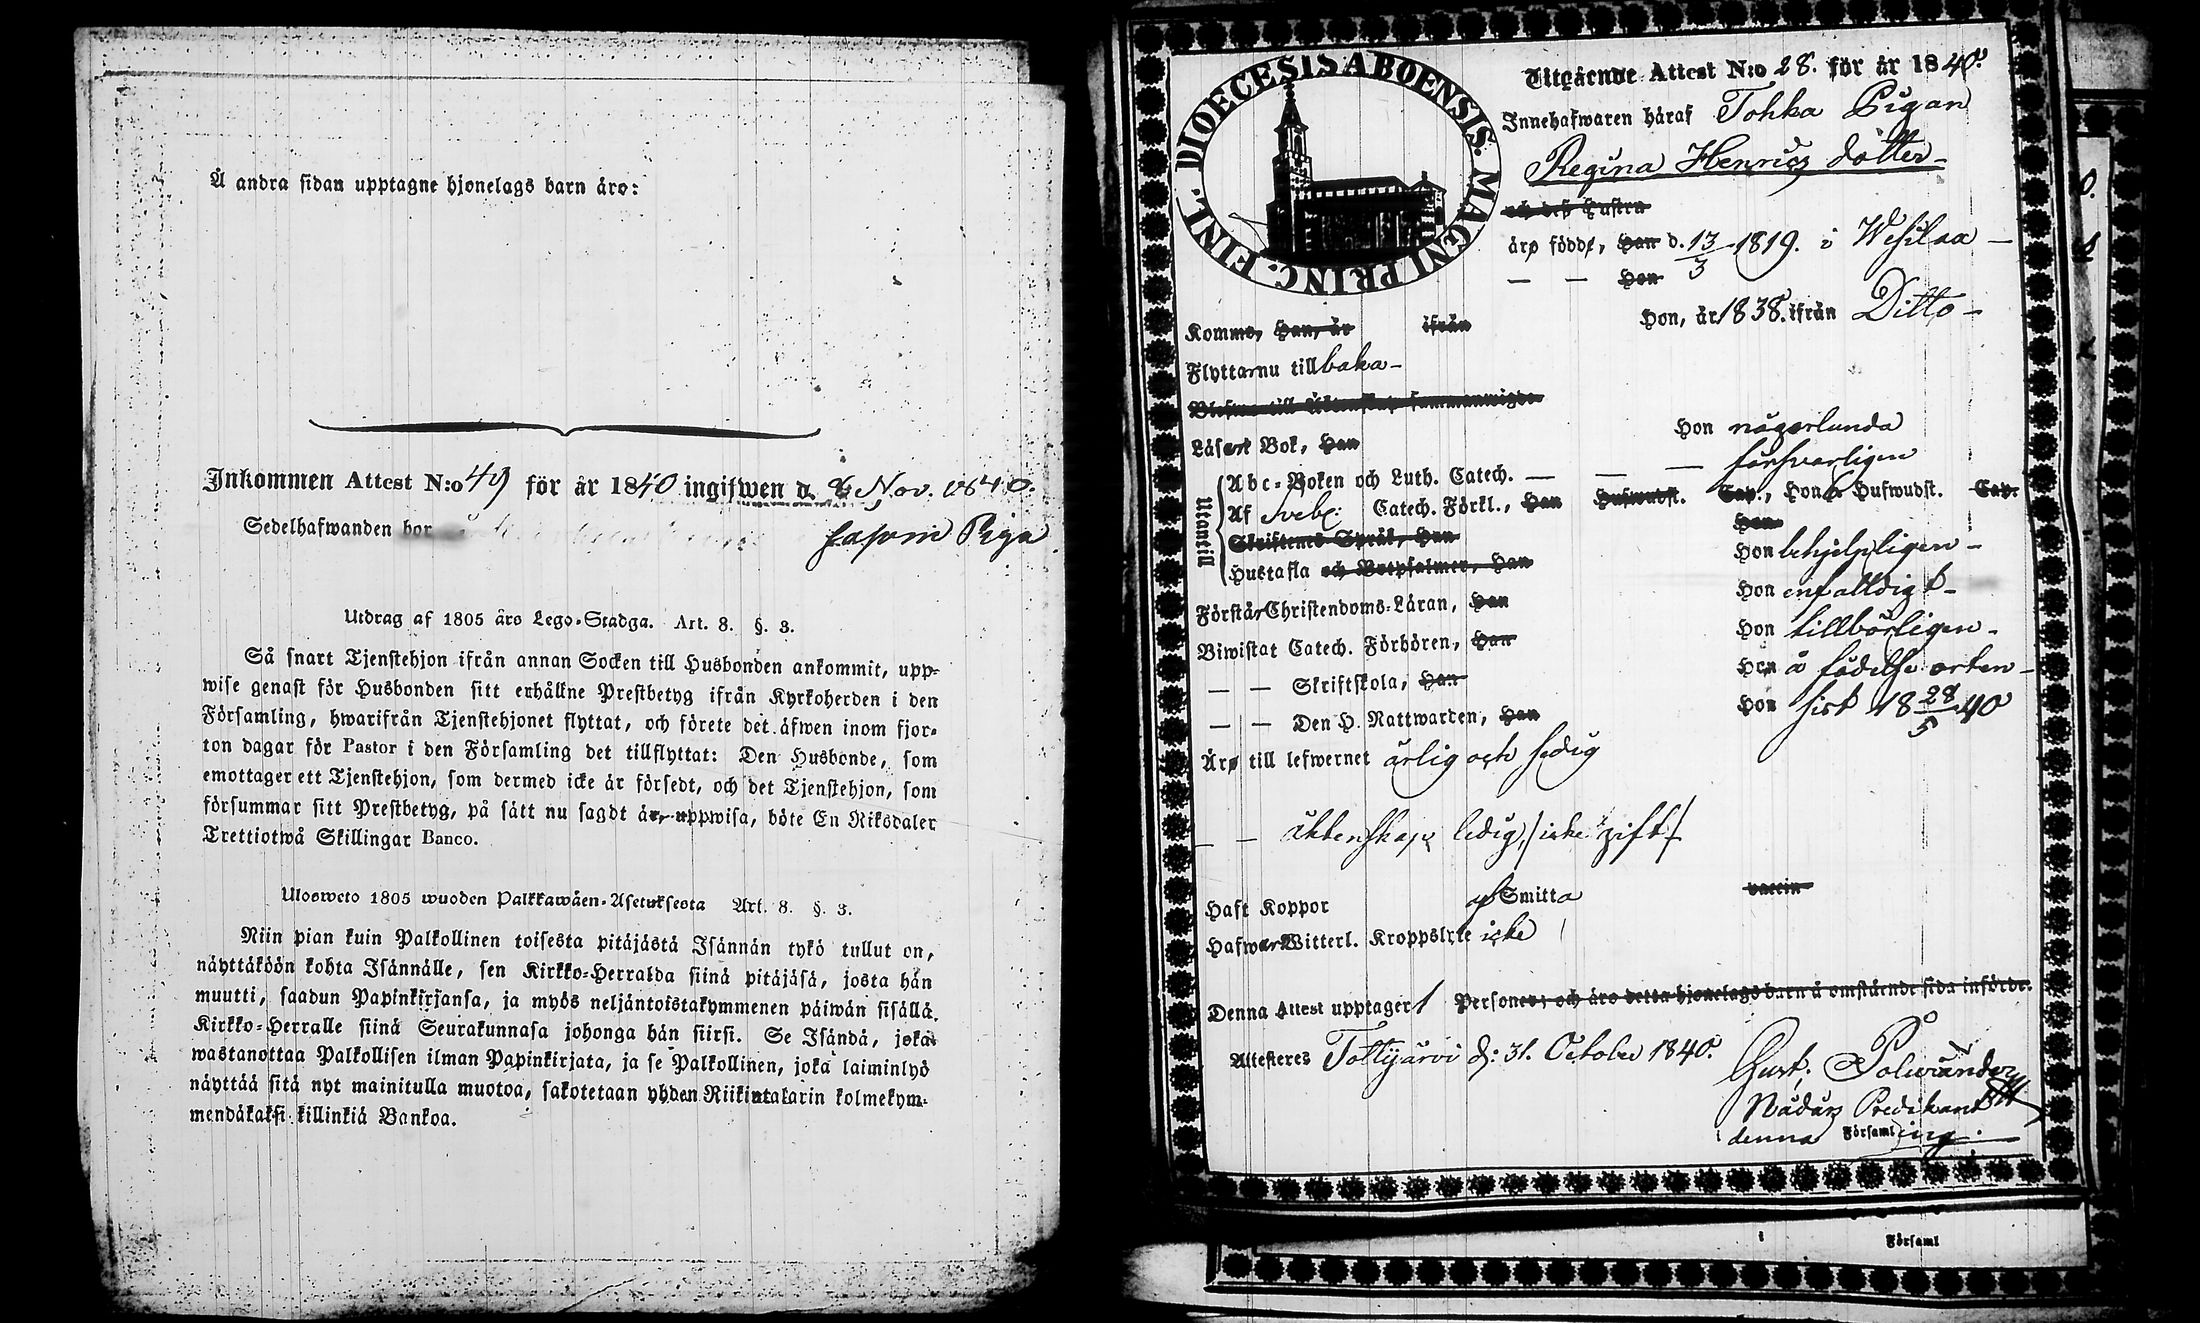 Å andra sidan upptagne hjonelags barn äro:
Inkommen Attest N:o 49 för år 1840 ingifwen d. 8 Nov. 1840.
Sedelhafwanden bor såsom Piga
Utdrag af 1805 års Lego-Stadga. Art. 8. §. 3.
Så snart Tjenstehjon ifrån annan Socken till Husbonden ankommit, upp-
wise genast för Husbonden sitt erhållne Prestbetyg ifrån Kyrkoherden i den
Församling, hwarifrån Tjenstehjonet flyttat, och förete det äfwen inom fjor-
ton dagar för Pastor i den Församling det tillflyttat: Den Husbonde, som
emottager ett Tjenstehjon, som dermed icke är försedt, och det Tjenstehjon, som
försummar sitt Prestbetyg, på sätt nu sagdt är, uppwisa, böte En Riksdaler
Trettiotwå Skillingar Banco.
Ulosweto 1805 wuoden Palkkawäen-Asetuksesta Art. 8. §. 3.
Niin pian kuin Palkollinen toisesta pitäjästä Isännän tykö tullut on,
näyttäköön kohta Isännälle, sen Kirkko-Herralda siinä pitäjäsä, josta hän
muutti, saadun Papinkirjansa, ja myös neljäntoistakymmenen päiwän sisällä.
Kirkko-Herralle siinä Seurakunnasa johonga hän siirsi. Se Isändä, joka
wastanottaa Palkollisen ilman Papinkirjata, ja se Palkollinen, joka laiminlyö
näyttää sitä nyt mainitulla muotoa, sakotetaan yhden Riikintalarin kolmekym-
mendäkaksi killinkiä Bankoa.
DIOECESIS ABOENSIS. MAGNI PRINC. FINL.
Utgående Attest N:o 28. för år 1840.
Innehafwaren häraf Tohka Pigan
Regina Henrics dotter
och deß Hustru
äro födde, Han d. 13/3 1819. i Wesilax
— — Hon
Komme, Han, år ifrån Hon, år 1838. ifrån Ditto
Flyttar nu tillbaka
Läsert Bok, Han Hon någorlunda
Utantill
Abc-Boken och Luth. Catech. — — — försvarligen
Af Sveb: Catech. Förkl., Han Hufwudst. Cap., Hon Hufwudst. Cap.
Skriftens Språk, Han Hon
Hustafla och Botpsalmer, Han Hon behjelpligen
Förstår Christendoms-Läran, Han Hon enfalldigt
Biwistat Catech. Förhören, Han Hon tillbörligen
— — Skriftskola, Han Hon å födelse orten
— — Den H. Nattwarden, Han Hon sist 18 28/5 40
Äro till lefwernet ärlig och sedig
— — äktenskap ledig, /icke gift/
Haft Koppor af Smitta vaccin
Hafwer Witterl. Kroppslyte icke
Denna Attest upptager 1 Personer; och äro detta hjonelags barn å omstående sida införde.
Attesteres Tottijärvi d: 31. October 1840.
Gust: Polviander
Nådårs Predikant
i denna Församling.
Församl